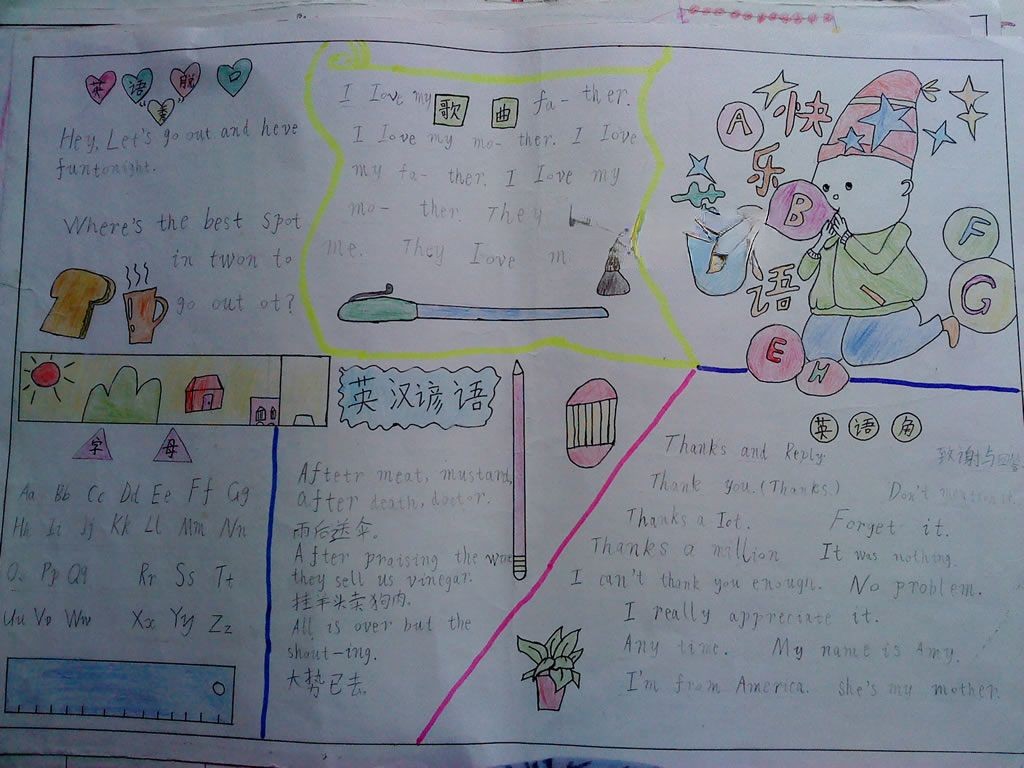 英语脱口
“秀”
Hey, Let's go out and heve
funtonight.
Where's the best spot
in twon to
go out ot?
I Love my 歌 曲 fa- ther.
I Iove my mo- ther. I Iove
my fa- ther. I Iove my
mo- ther. They
me. They Iove m
A 快
乐
英 B
语
E H
F
G
字 母
Aa Bb Cc Dd Ee Ff Gg
Hh Ii Jj Kk Ll Mm Nn
Pp Qq Rr Ss Tt
Uu Vv Ww Xx Yy Zz
英汉谚语
Aftetr meat, mustard,
after death, doctor.
雨后送伞。
After praising the wine
they sell us vinegar.
挂羊头卖狗肉.
All is over but the
shout-ing.
大势已去.
英 语 角
Thanks and Reply 致谢与回答
Thank you.(Thanks.) Don't mention it.
Thanks a Iot. Forget it.
Thanks a million It was nothing.
I can't thank you enough. No problem.
I really appreciate it.
Any time. My name is Amy.
I'm from America. she's my mother.